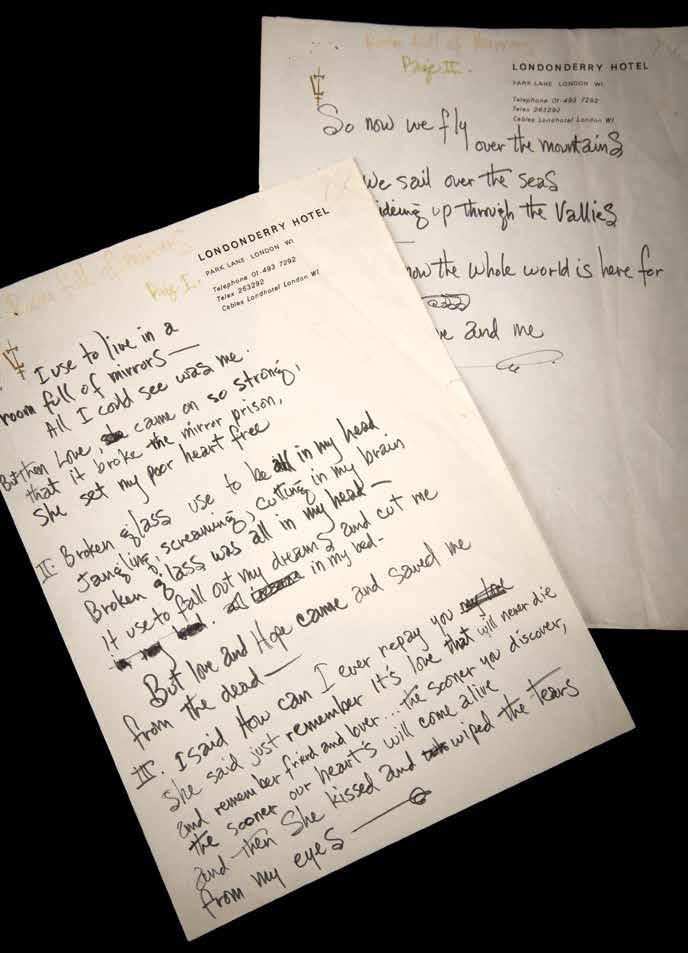 Room full of Mirrors
Page I.
LONDONDERRY HOTEL
PARK LANE LONDON W1
Telephone 01-493 7292
Telex 263292
Cables Londhotel London W1
I use to live in a
room full of mirrors —
All I could see was me.
But then Love, she came on so strong,
that it broke the mirror prison,
She set my poor heart free
II: Broken glass use to be all in my head
Jangling, screaming, cutting in my brain
Broken glass was all in my head —
It use to fall out my dreams and cut me
in my bed. in my bed-
But love and Hope came and saved me
from the dead —
III. I said How can I ever repay you
She said just remember it's love that will never die
and remember friend and lover... the sooner you discover,
the sooner our heart's will come alive
and then She kissed and wiped the tears
from my eyes —
Room full of Mirrors
Page II.
LONDONDERRY HOTEL
PARK LANE LONDON W1
Telephone 01-493 7292
Telex 263292
Cables Londhotel London W1
So now we fly
over the mountains
We sail over the seas
ideing up through the Vallies
now the whole world is here for
and me